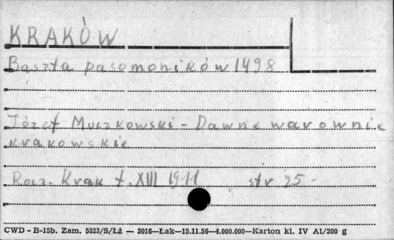 KRAKÓW
Baszta pasomoników 1498
Józef Muczkowski - Dawne warownie
krakowskie
Rocz. Krak t. XIII 1911 str 25-
CWD - B-15b. Zam. 5323/S/Łż — 3016—Łak—15.11.56—4.000.000—Karton kl. IV A1/200 g